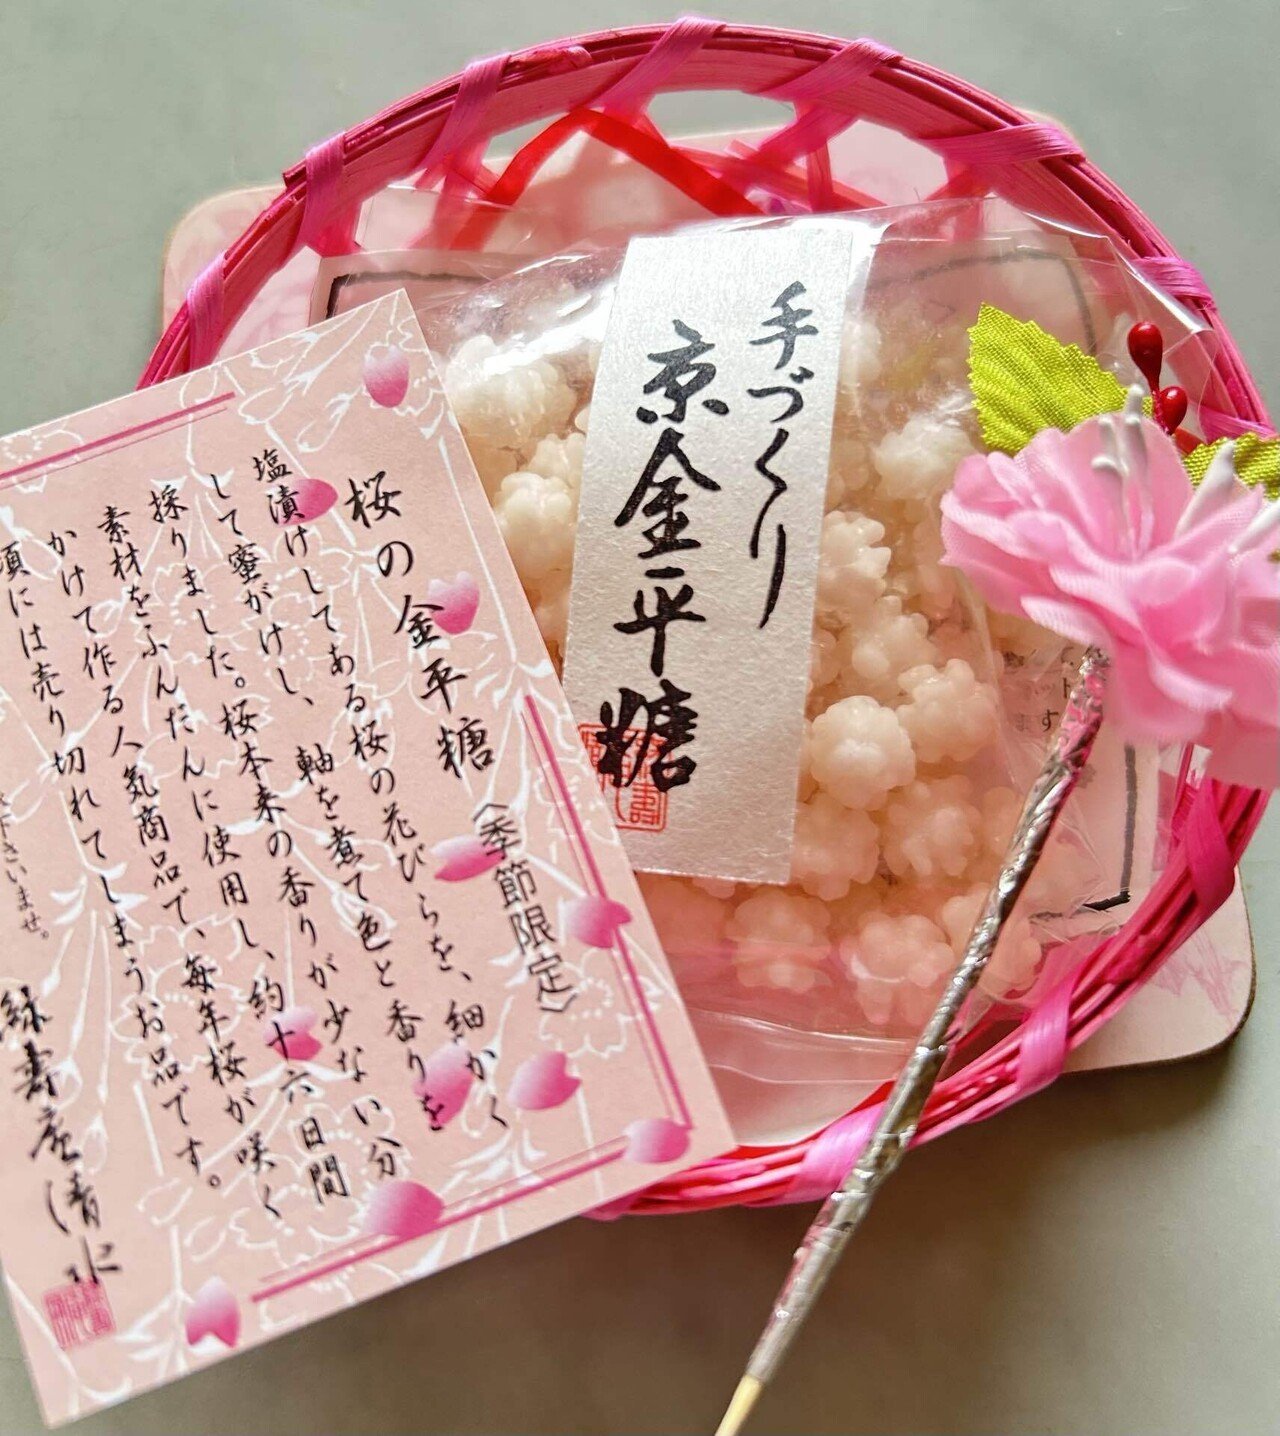 手づくり
京金平糖
桜の金平糖
〈季節限定〉
塩漬けしてある桜の花びらを、細かく
して蜜がけし、軸を煮て色と香りを
採りました。桜本来の香りが少ない分
素材をふんだんに使用し、約十六日間
かけて作る人気商品で、毎年桜が咲く
頃には売り切れてしまうお品です。
下さいませ。
緑寿庵清水